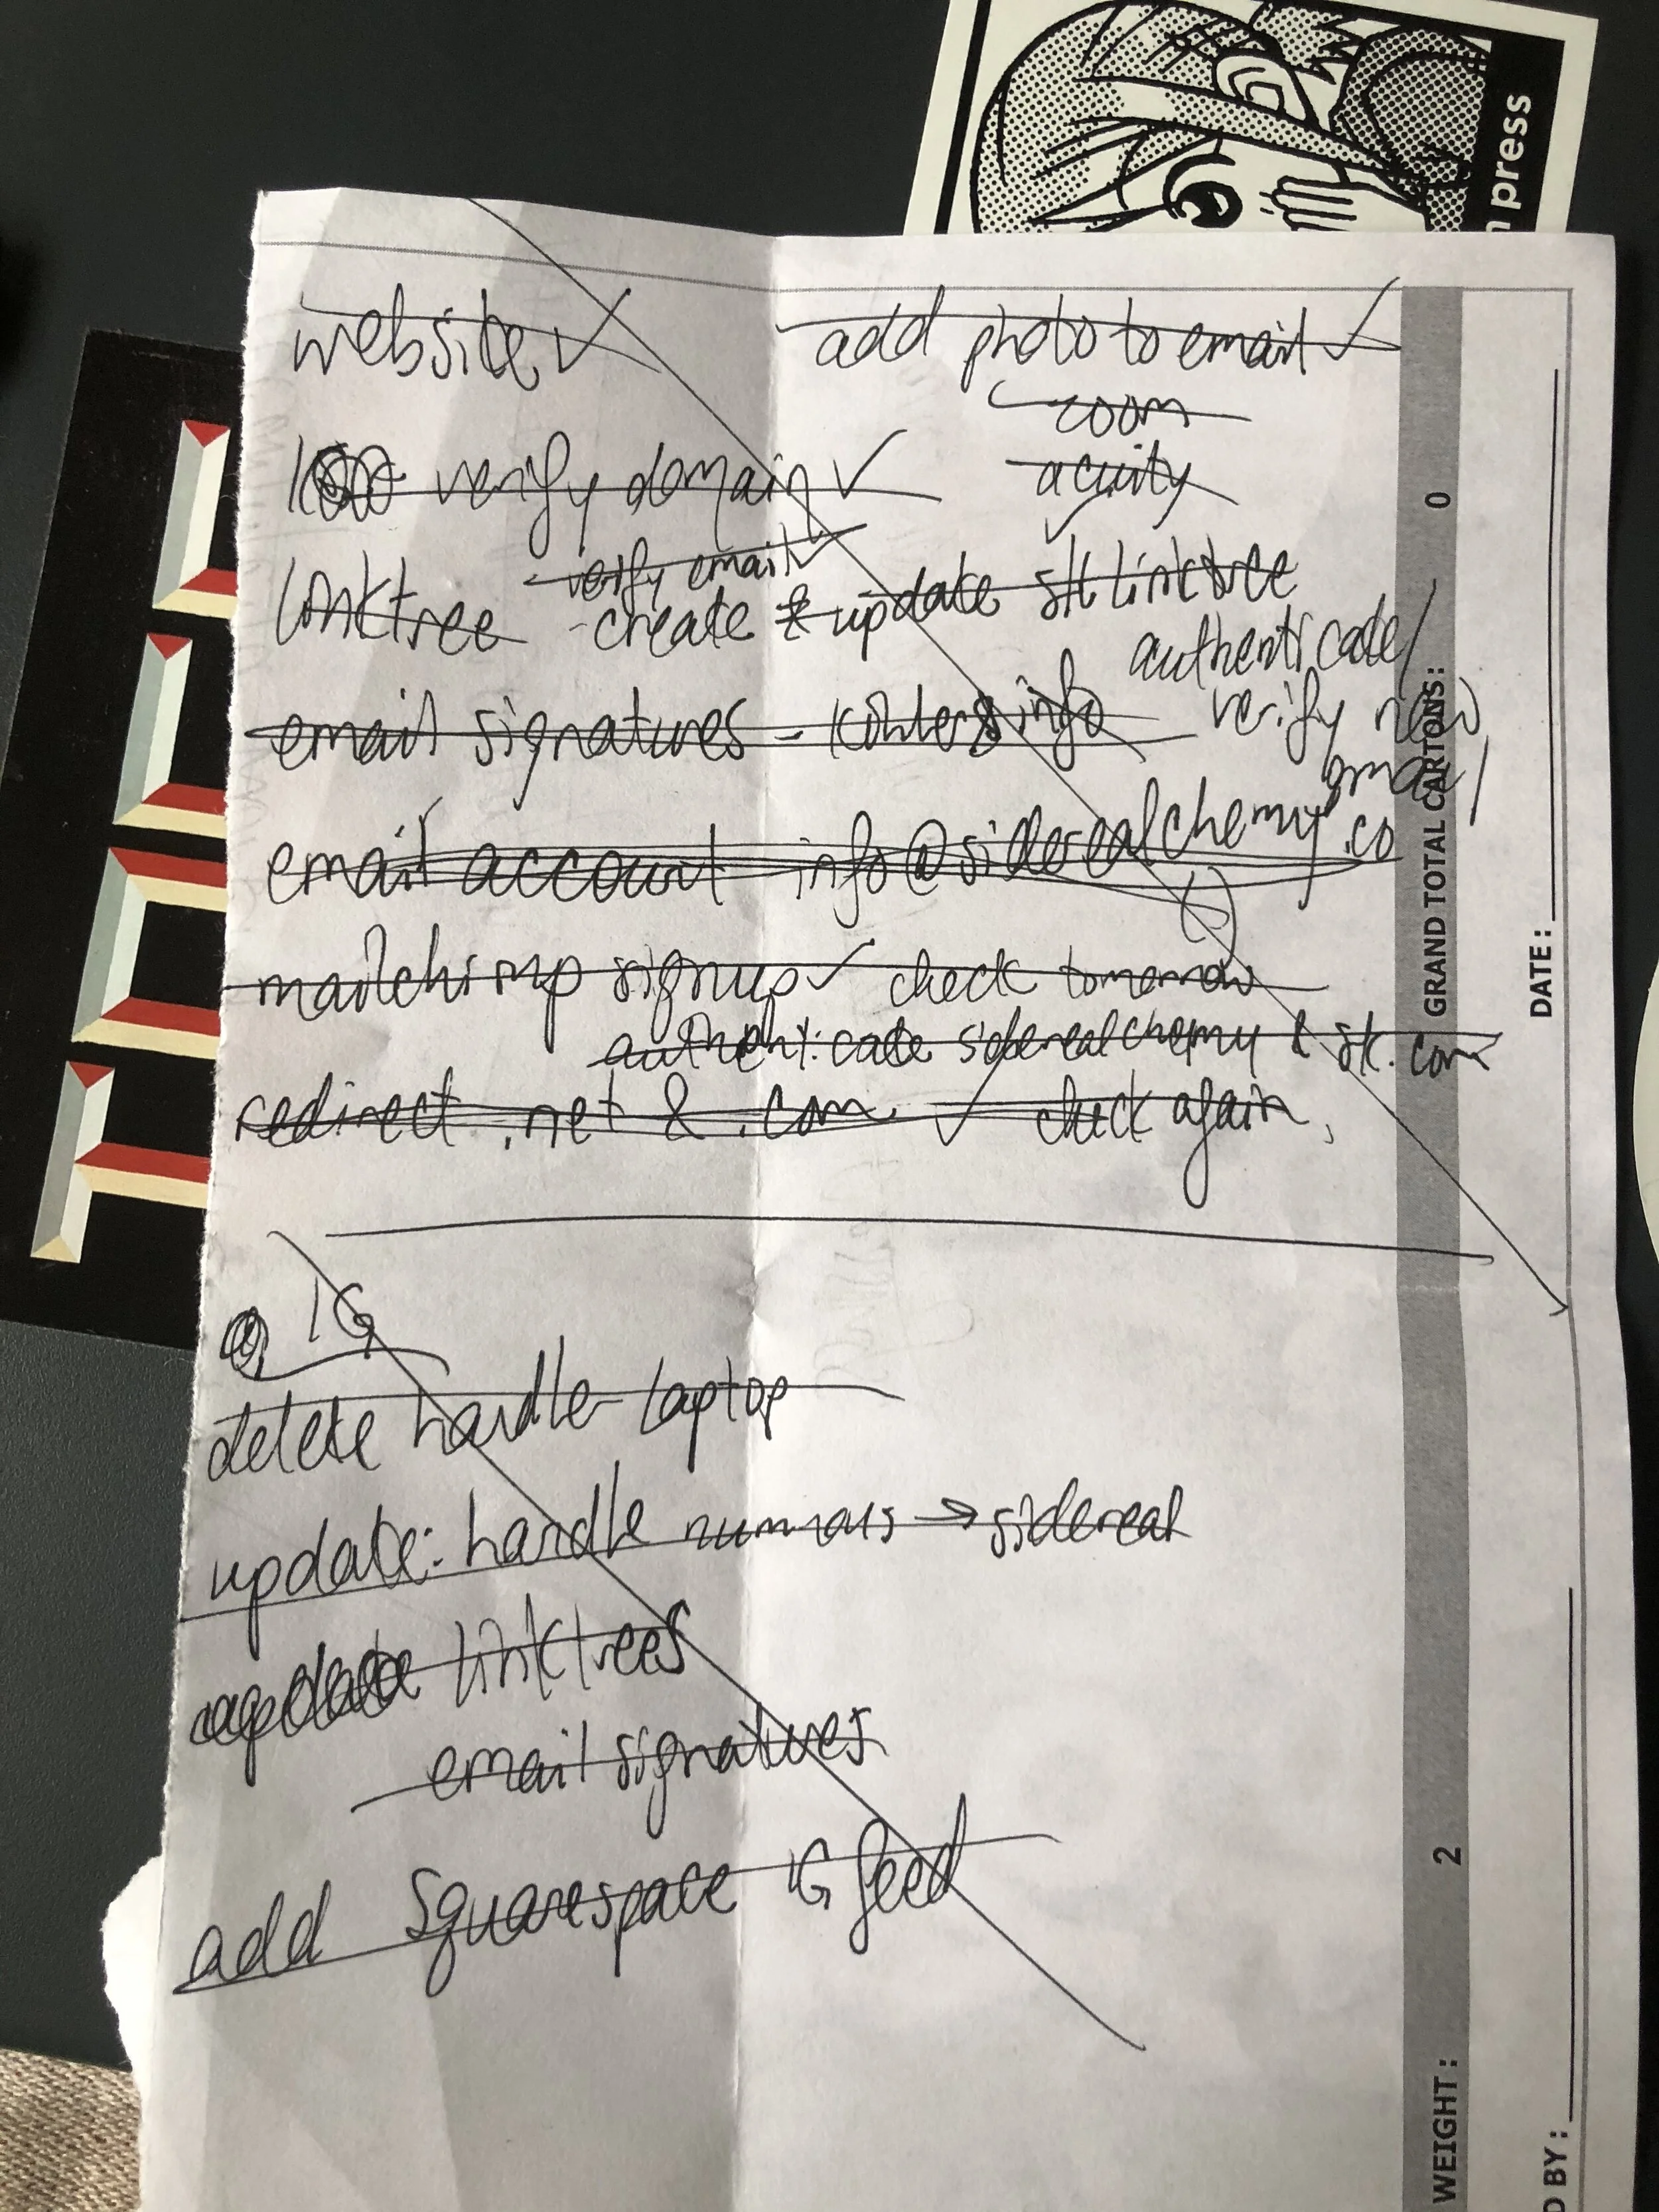 website ✓
add photo to email ✓
zoom
acuity
verify domain ✓
verify email ✓
linktree - create & update stk linktree
authenticate/
verify new
email
email signatures - info
email account info@siderealchemy.co
mailchimp signup ✓ check tomorrow
authenticate siderealchemy & stk.com
redirect .net & .com ✓ check again
IG
delete handle laptop
update: handle → sidereal
update linktrees
email signatures
add Squarespace IG feed
press
GRAND TOTAL CARTONS: 0
DATE:
WEIGHT: 2
D BY: